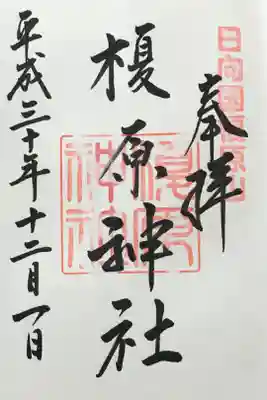 奉拝
榎原神社
平成三十年十二月一日
榎原
神社